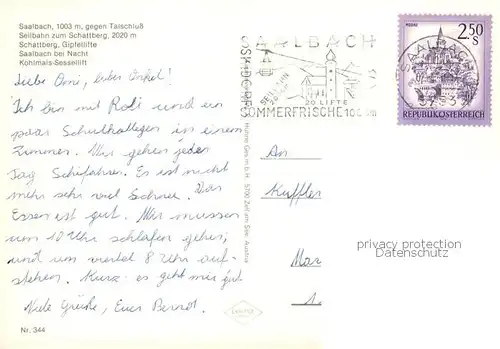 Saalbach, 1003 m, gegen Talschluß
Seilbahn zum Schattberg, 2020 m
Schattberg, Gipfellifte
Saalbach bei Nacht
Kohlmais-Sessellift
Liebe Omi, lieber Onkel!
Ich bin mit Rolf und ein
paar Schulkollegen in einem
Zimmer. Wir gehen jeden
Tag Schifahren. Es ist nicht
mehr sehr viel Schnee. Das
Essen ist gut. Wir müssen
um 10 Uhr schlafen gehen,
und um viertel 8 Uhr auf-
stehen. Kurz: es geht mir gut
Viele Grüße, Euer Bernd.
Nr. 344
SAALBACH
SKIDORF
SEILBAHN
20 LIFTE
SOMMERFRISCHE 1003m
5700 Zell am See, Austria
2.50
S
REPUBLIK ÖSTERREICH
SAALBACH
An
Kuffler
Mar
1.
privacy protection
Datenschutz